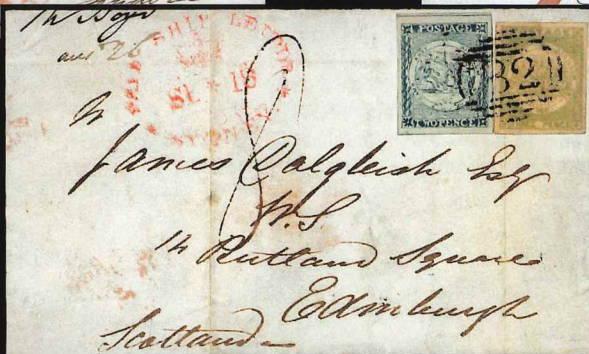 PAID SHIP LETTER
SYDNEY
POSTAGE
TWOPENCE
82
8
James Dalgleish Esqr
W.S.
14 Rutland Square
Edinburgh
Scotland